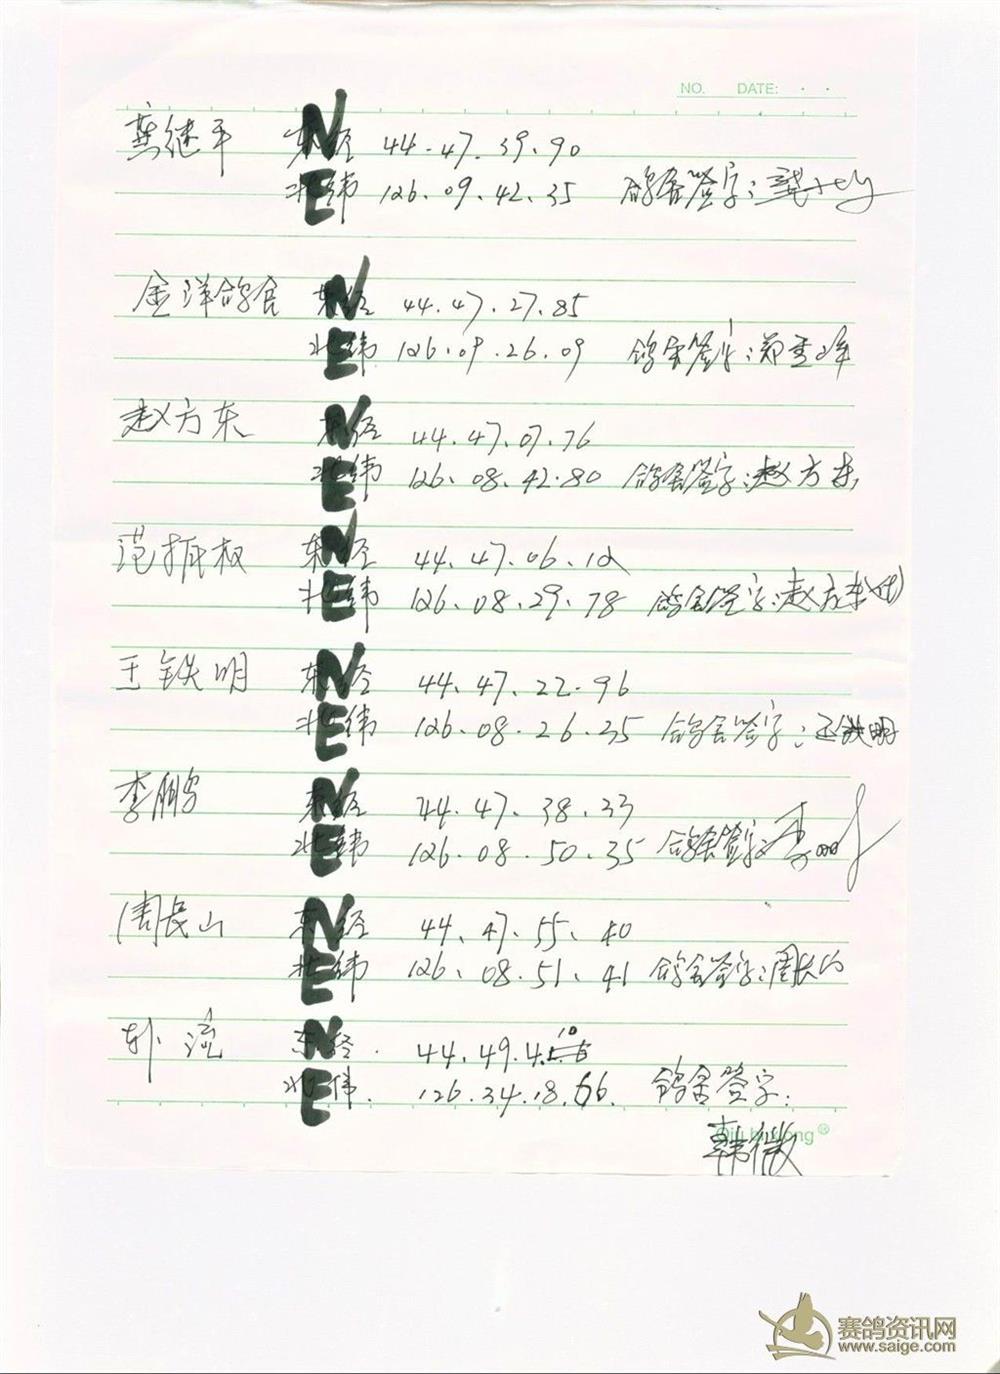 NO. DATE:
龚继平 东经 N 44.47.39.90
北纬 E 126.09.42.35 鸽舍签字:
金洋鸽舍 东经 N 44.47.27.85
北纬 E 126.09.26.09 鸽舍签字:郑重峰
赵方东 东经 N 44.47.07.76
北纬 E 126.08.42.80 鸽舍签字:赵方东
范振权 东经 N 44.47.06.12
北纬 E 126.08.29.78 鸽舍签字:赵方东代
王铁明 东经 N 44.47.22.96
北纬 E 126.08.26.35 鸽舍签字:王铁明
李鹏 东经 N 44.47.38.33
北纬 E 126.08.50.35 鸽舍签字:李
周长山 东经 N 44.47.55.40
北纬 E 126.08.51.41 鸽舍签字:周长山
东经 N 44.49.4
北伟 E 126.34.18.66. 鸽舍签字:
韩微
赛鸽资讯网
www.saige.com